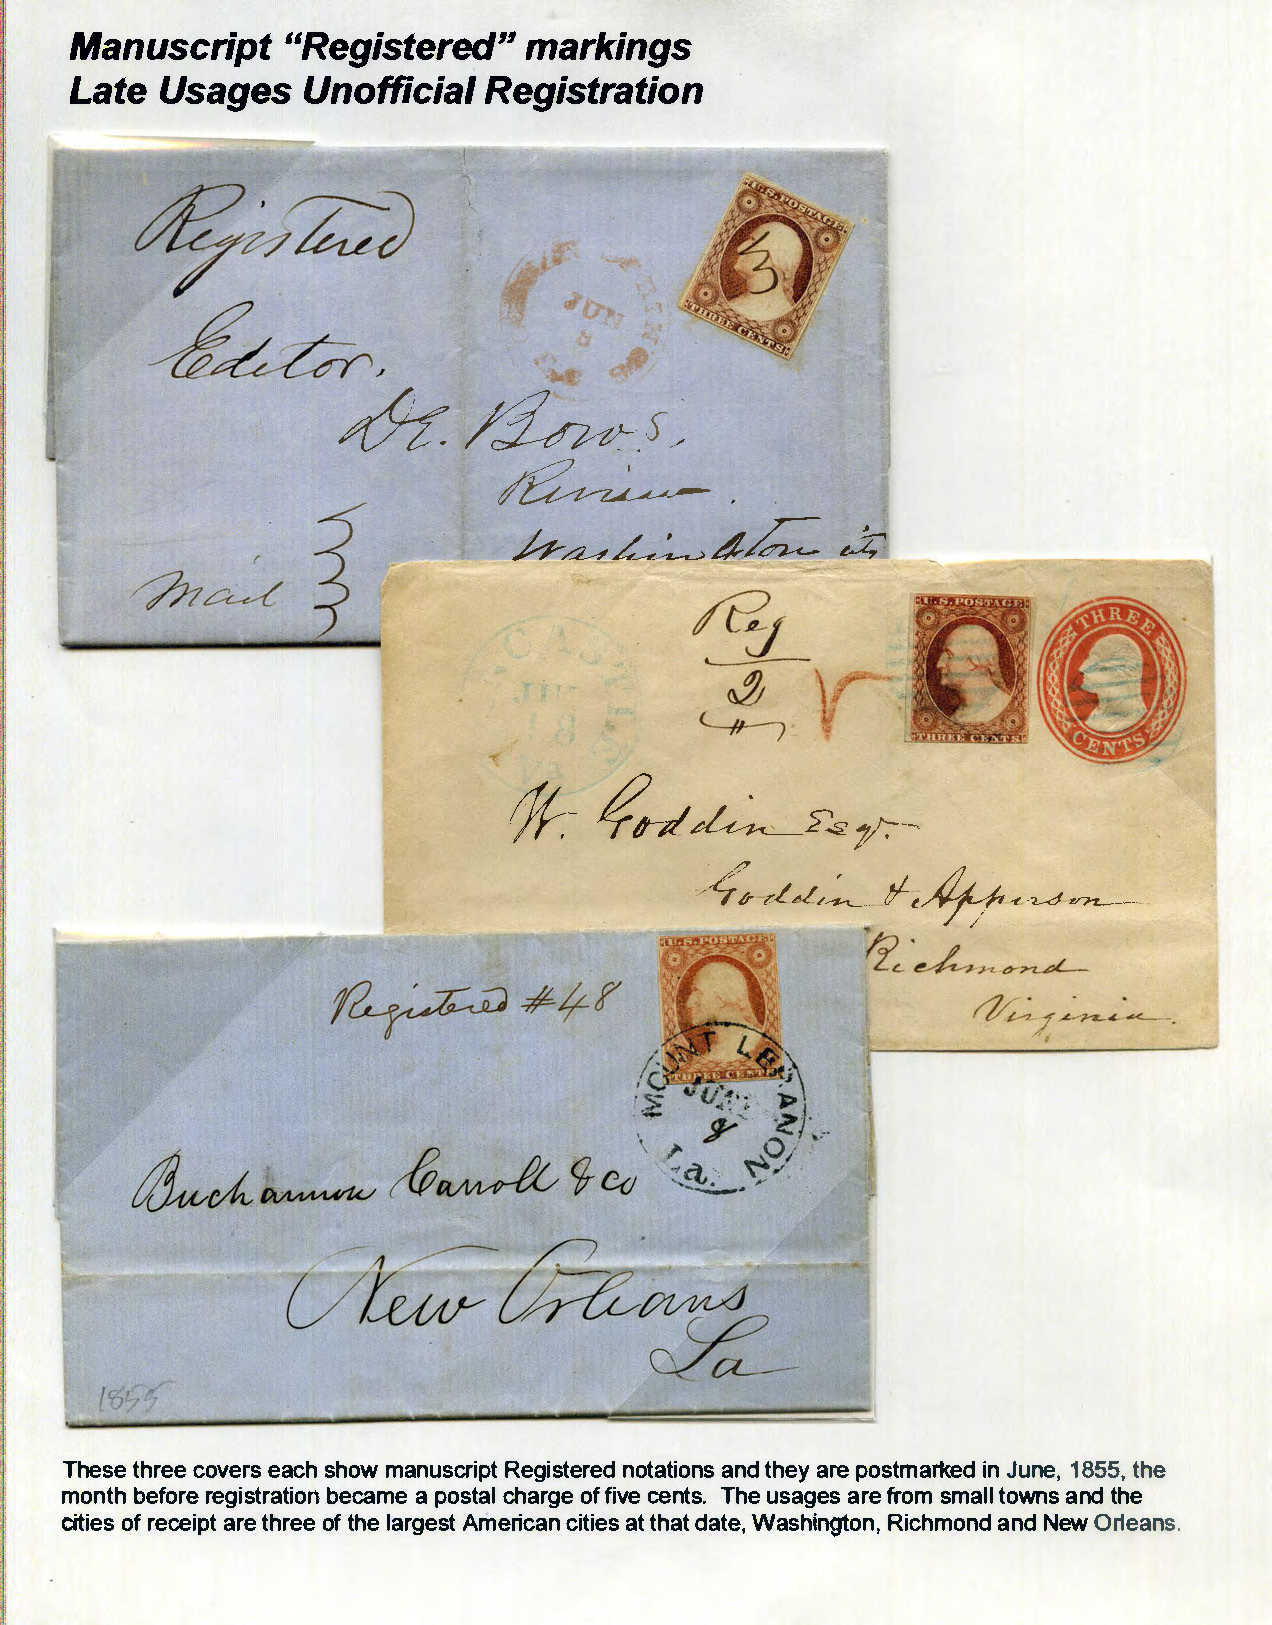 Manuscript “Registered” markings
Late Usages Unofficial Registration
Registered
U.S. POSTAGE
3
THREE CENTS
JUN
Editor.
De. Bow's,
Review.
Washington city
Mail
Reg
2
"
U.S. POSTAGE
THREE CENTS
THREE
CENTS
W. Goddin Esqr.
Goddin & Apperson
Richmond
Virginia.
U.S. POSTAGE
THREE CENTS
Registered #48
MOUNT LEBANON
JUN
8
La.
Buchannon Carroll & Co
New Orleans
La
1855
These three covers each show manuscript Registered notations and they are postmarked in June, 1855, the
month before registration became a postal charge of five cents. The usages are from small towns and the
cities of receipt are three of the largest American cities at that date, Washington, Richmond and New Orleans.